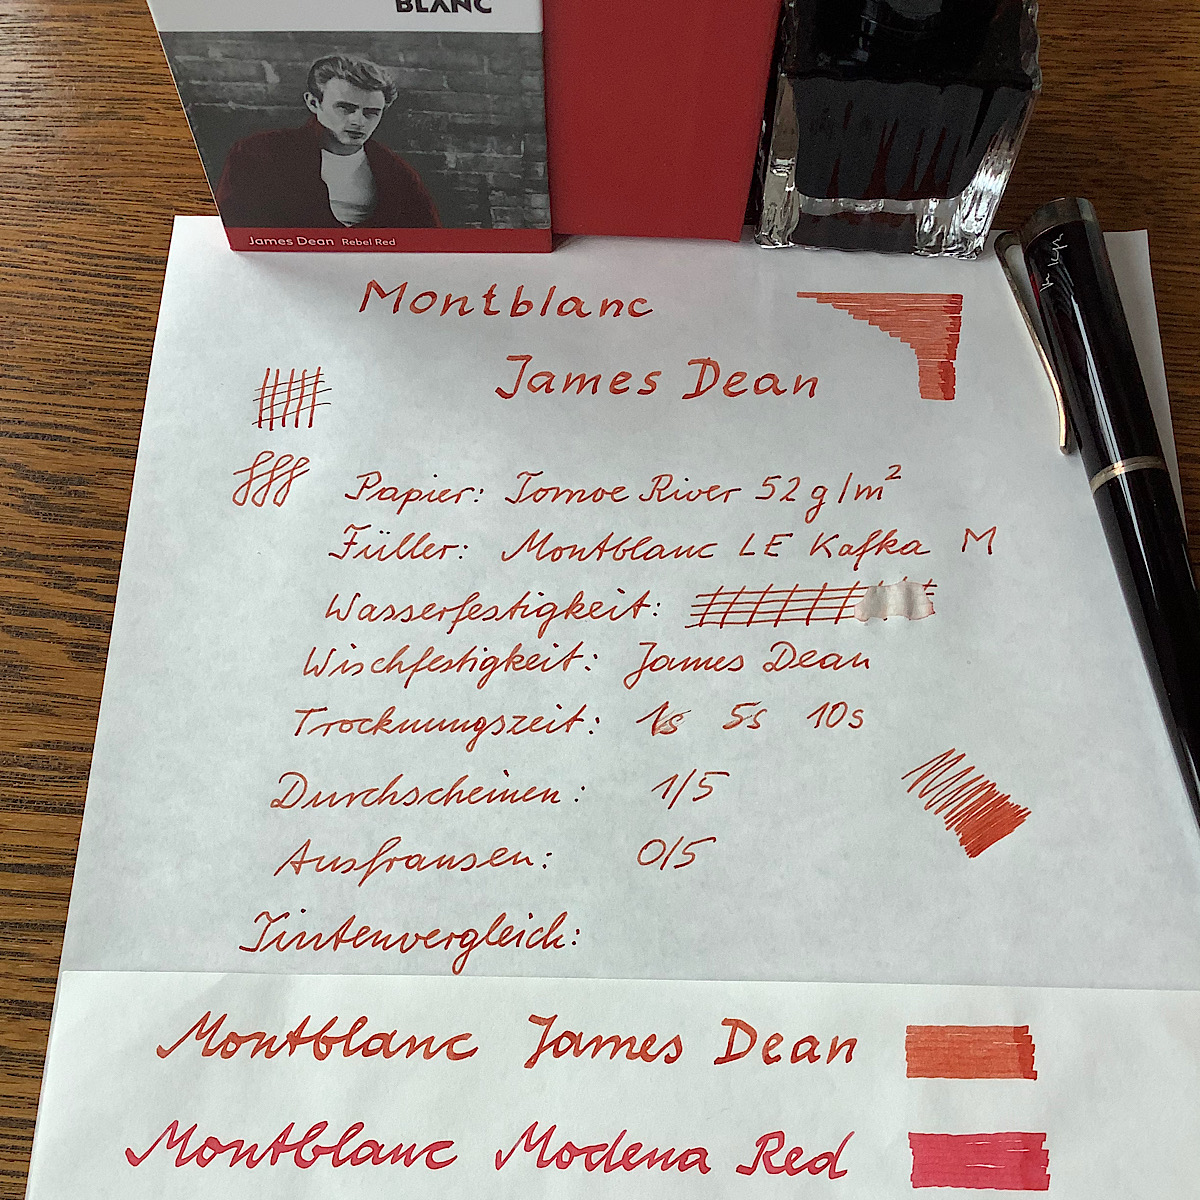 BLANC
James Dean Rebel Red
Montblanc
James Dean
Papier: Tomoe River 52 g/m²
Füller: Montblanc LE Kafka M
Wasserfestigkeit:
Wischfestigkeit: James Dean
Trocknungszeit: 1s 5s 10s
Durchscheinen: 1/5
Ausfransen: 0/5
Tintenvergleich:
Montblanc James Dean
Montblanc Modena Red